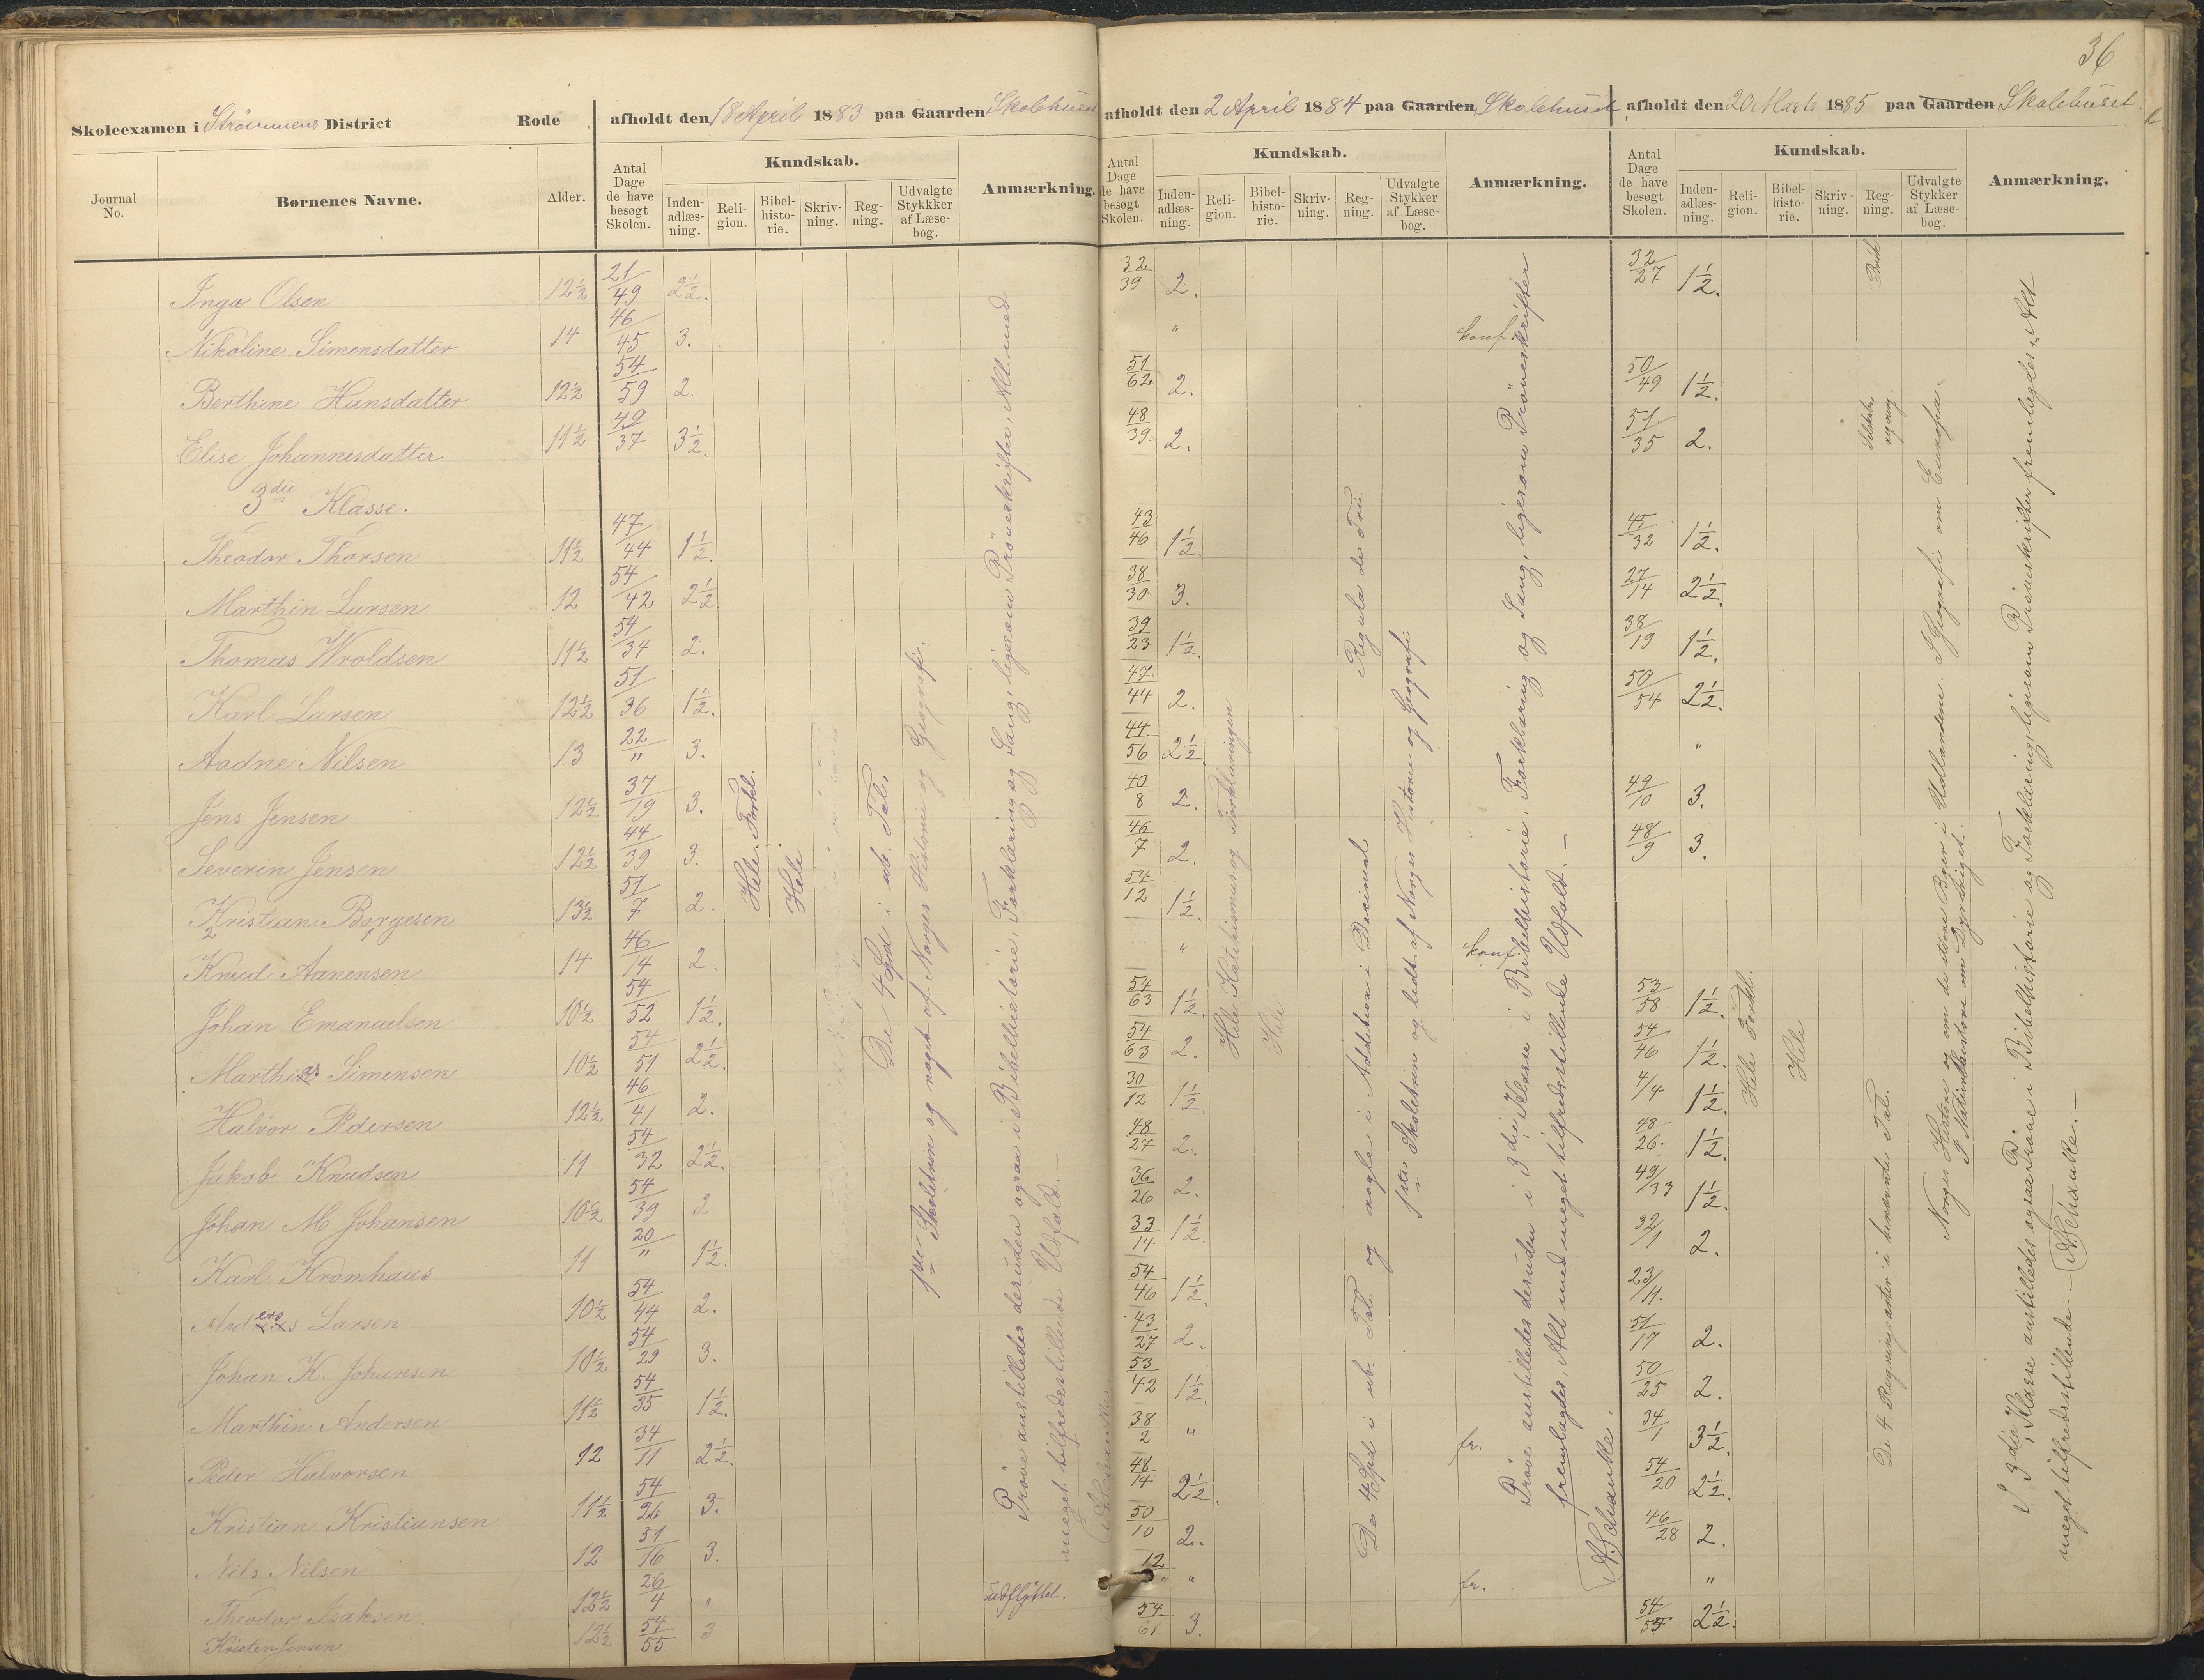 36
Skoleexamen i Strömmens District Rode afholdt den 18 April 1883 paa Gaarden Skolehuset
afholdt den 2 April 1884 paa Gaarden Skolehuset
afholdt den 20 Marts 1885 paa Gaarden Skolehuset.
Journal No. Børnenes Navne. Alder. Antal Dage de have besøgt Skolen. Kundskab. Indenadlæsning. Religion. Bibelhistorie. Skrivning. Regning. Udvalgte Stykker af Læsebog. Anmærkning.
Antal Dage de have besøgt Skolen. Kundskab. Indenadlæsning. Religion. Bibelhistorie. Skrivning. Regning. Udvalgte Stykker af Læsebog. Anmærkning.
Antal Dage de have besøgt Skolen. Kundskab. Indenadlæsning. Religion. Bibelhistorie. Skrivning. Regning. Udvalgte Stykker af Læsebog. Anmærkning.
Inga Olsen 12½ 21/49 2½. 32/39 2. 32/27 1½.
Nikoline Simensdatter 14 46/45 3. " konf.
Berthine Hansdatter 12½ 54/59 2. 51/62 2. 50/49 1½.
Elise Johannesdatter 11½ 49/37 3½. 48/39 2. 51/35 2.
3die Klasse.
Theodor Thorsen 11½ 47/44 1½. 43/46 1½. 45/32 1½.
Marthin Larsen 12 54/42 2½. 38/30 3. 27/14 2½.
Thomas Wroldsen 11½ 54/34 2. 39/23 1½. 38/19 1½.
Karl Larsen 12½ 51/36 1½. 47/44 2. 50/54 2½.
Aadne Nilsen 13 22/" 3. 44/56 2½. "
Jens Jensen 12½ 37/19 3. 40/8 2. 49/10 3.
Severin Jensen 12½ 44/39 3. 46/7 2. 48/9 3.
Kristian Börgesen 13½ 51/7 2. 54/12 1½.
Knud Aanensen 14 46/14 2. " konf.
Johan Emanuelsen 10½ 54/52 1½. 54/63 1½. 53/58 1½.
Marthias Simensen 10½ 54/51 2½. 54/63 2. 54/46 1½.
Halvor Pedersen 12½ 46/41 2. 30/12 1½. 4/4 1½.
Jakob Knudsen 11 54/32 2½. 48/27 2. 48/26 1½.
Johan M Johansen 10½ 54/39 2 36/26 2. 49/33 1½.
Karl Kromhaus 11 20/" 1½. 33/14 1½. 32/1 2.
Anders Larsen 10½ 54/44 2. 54/46 1½. 23/11.
Johan K. Johansen 10½ 54/29 3. 43/27 2. 51/17 2.
Marthin Andersen 11½ 54/35 1½. 53/42 1½. 50/25 2.
Peder Halvorsen 12 34/11 2½. 38/2 " fr. 34/1 3½.
Kristian Kristiansen 11½ 54/26 3. 48/14 2½. 54/20 2½.
Nils Nilsen 12 51/16 3. 50/10 2. 46/28 2.
Theodor Isaksen 12½ 26/4 " udflyttet. 12/" " fr. "
Kristen Jensen 12½ 54/55 3 54/61. 3. 54/55 2½.
Hele Forkl.
Hele
De 4 Spd i ub. Tal.
1ste Skoletrin og noget af Norges Historie og Geografi.
Prøve anstilledes desuden ogsaa i Bibelhistorie, Forklaring og Sang, ligesom Prøveskrifter, Alt med
meget tilfredsstillende Udfald.—
A. Schanke.
Hele Katekismus og Forklaringen
Hele
De 4 Spd i ub. Tal og nogle i Addition i Decimal
Regula de Tri
1ste Skoletrin og lidt af Norges Historie og Geografi
Prøve anstilledes desuden i 3die Klasse i Bibelhistorie, Forklaring og Sang, ligesom Prøveskrifter
fremlagdes, Alt med meget tilfredsstillende Udfald.—
A. Schanke.
Hele Forkl.
Hele
De 4 Regningsarter i benævnte Tal.
Brök
Norges Historie og om de större Byer i Udlandene. I Geografi om Europa.
I Naturhistorie om Dyreriget.
I 3die Klasse anstilledes ogsaa Prøve i Bibelhistorie og Forklaring, ligesom Prøveskrifter fremlagdes, Alt
meget tilfredsstillende.— A. Schanke.—